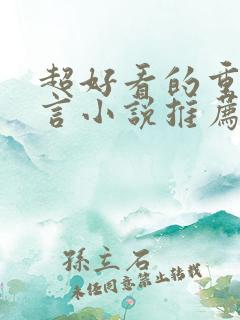 超好看的重
言小說推薦
孫立石
未经同意禁止转载